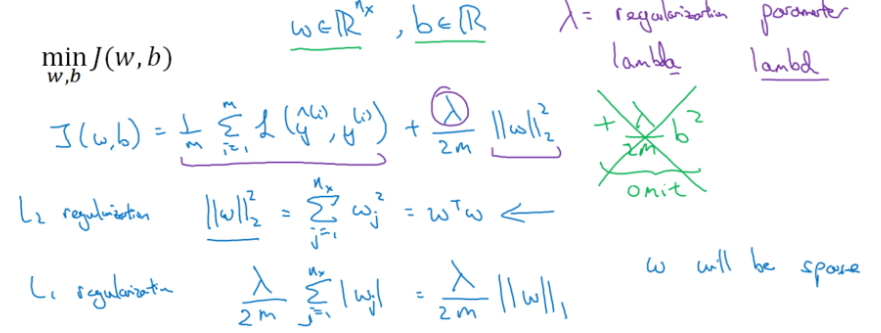 w ∈ ℝ^{n_x}, b ∈ ℝ
λ = regularization parameter
lambda lambd
min_{w,b} J(w, b)
J(w,b) = \frac{1}{m} \sum_{i=1}^{m} L(ŷ^{(i)}, y^{(i)}) + \frac{λ}{2m} ||w||_2^2 + \frac{λ}{2m} b^2
omit
L_2 regularization ||w||_2^2 = \sum_{j=1}^{n_x} w_j^2 = w^T w ←
L_1 regularization \frac{λ}{2m} \sum_{j=1}^{n_x} |w_j| = \frac{λ}{2m} ||w||_1
w will be sparse